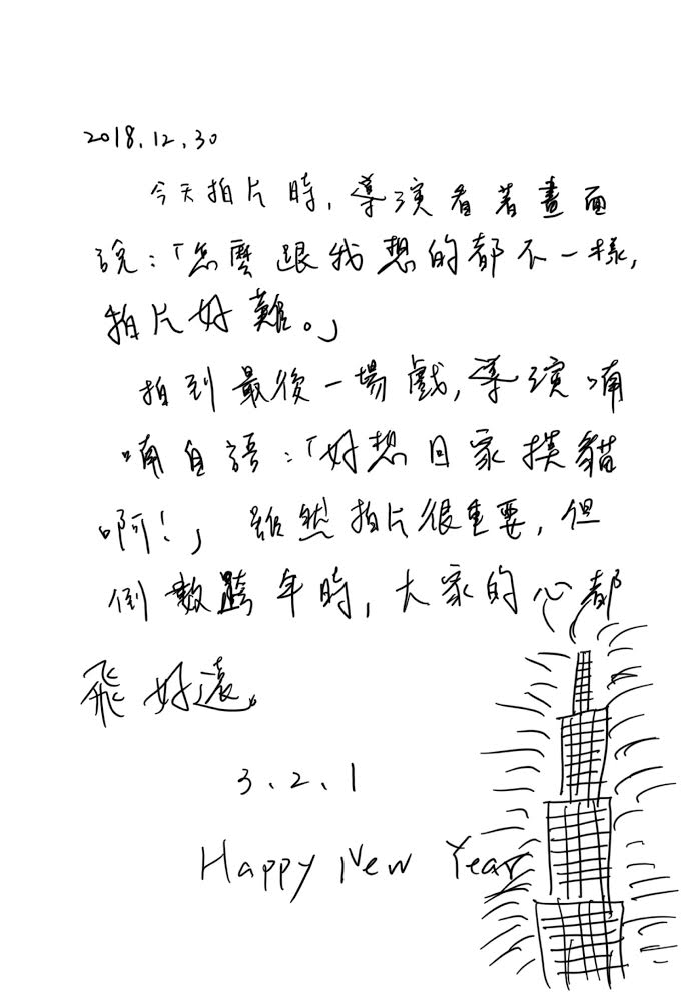 2018.12.30
今天拍片時,導演看著畫面
說:「怎麼跟我想的都不一樣,
拍片好難。」
拍到最後一場戲,導演喃
喃自語:「好想回家摸貓
啊!」雖然拍片很重要,但
倒數跨年時,大家的心都
飛好遠。
3、2、1
Happy New Year